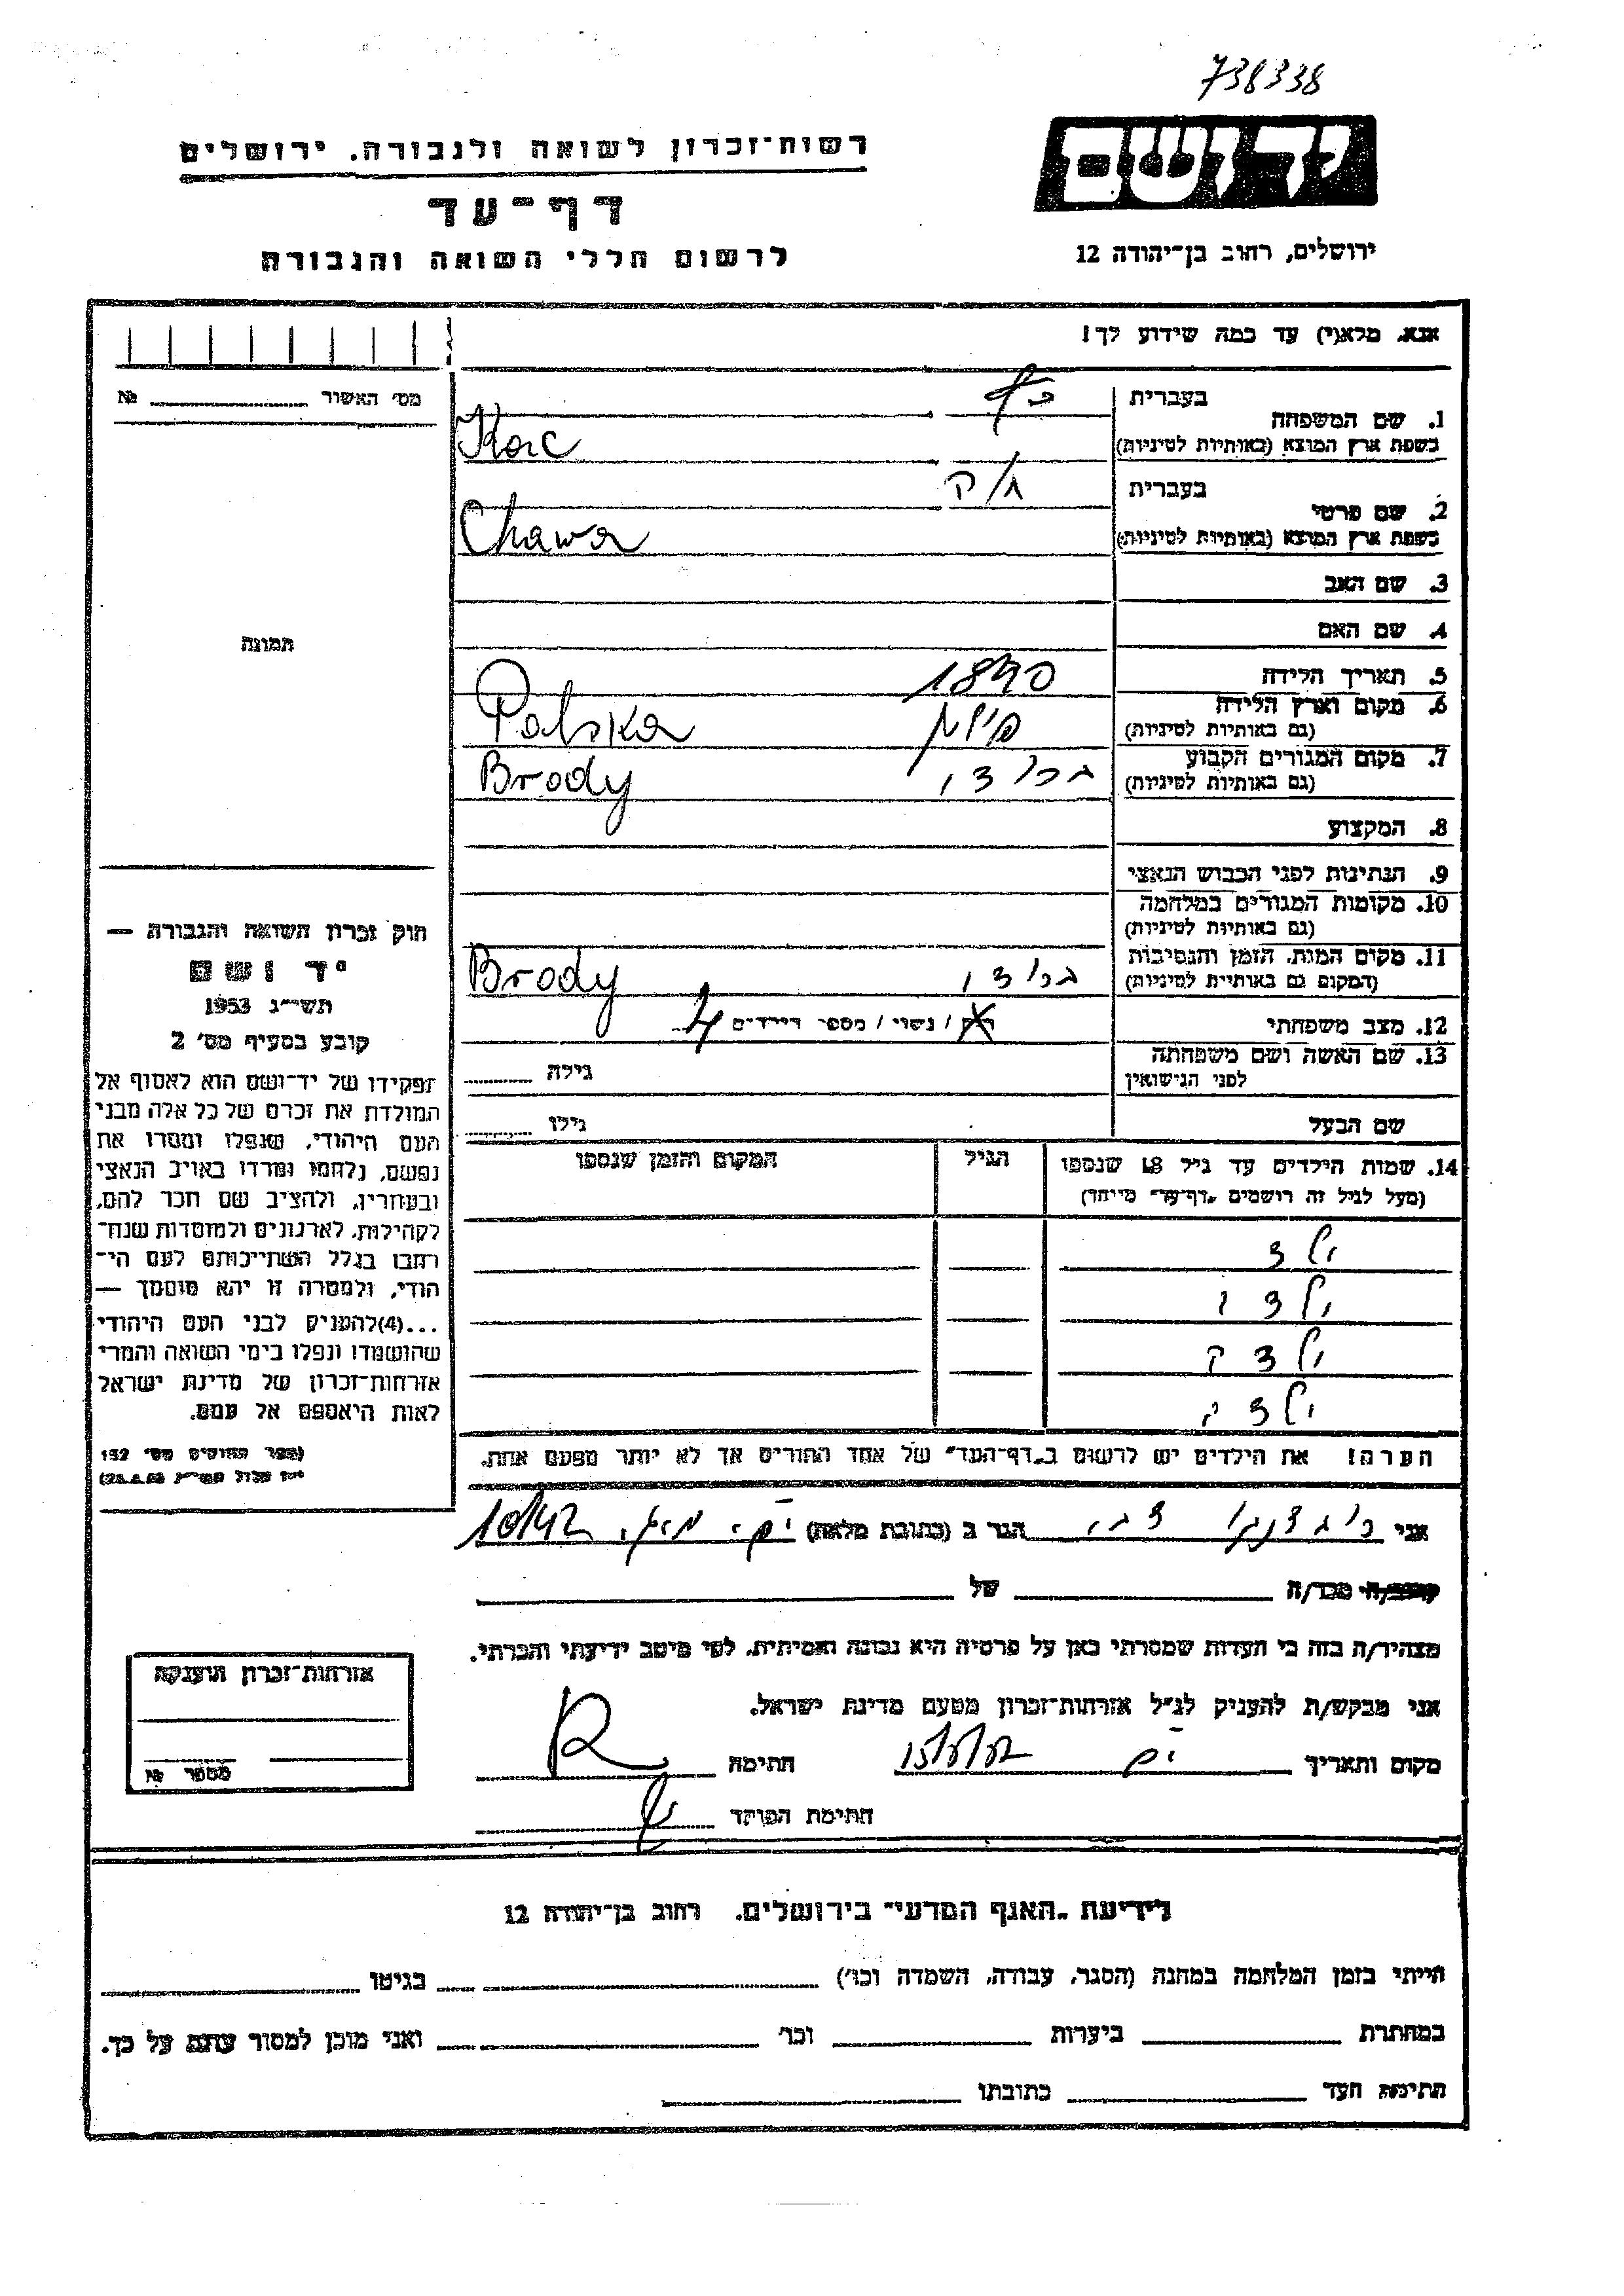 738338
יד ושם
רשות־זכרון לשואה ולגבורה. ירושלים
דף־עד
לרשום חללי השואה והגבורה
ירושלים, רחוב בן־יהודה 12
אנא, מלא(י) עד כמה שידוע לך!
מס׳ האשור № 
1. שם המשפחה בעברית כץ
בשפת ארץ המוצא (באותיות לטיניות) Kac
2. שם פרטי בעברית חוה
בשפת ארץ המוצא (באותיות לטיניות) Chawa
3. שם האב
4. שם האם
תמונה
5. תאריך הלידה 1890
6. מקום וארץ הלידה (גם באותיות לטיניות) פולין Polska
7. מקום המגורים הקבוע (גם באותיות לטיניות) ברודי Brody
8. המקצוע
9. הנתינות לפני הכבוש הנאצי
10. מקומות המגורים במלחמה (גם באותיות לטיניות)
11. מקום המות, הזמן והנסיבות (המקום גם באותיות לטיניות) ברודי Brody
12. מצב משפחתי רוק / נשוי / מספר הילדים 4
13. שם האשה ושם משפחתה לפני הנישואין גילה
שם הבעל גילו
14. שמות הילדים עד גיל 18 שנספו הגיל המקום והזמן שנספו
(מעל לגיל זה רושמים „דף־עד״ מיוחד)
ילד
ילד
ילדה
ילדה
הערה! את הילדים יש לרשום ב„דף־העד״ של אחד ההורים אך לא יותר מפעם אחת.
חוק זכרון השואה והגבורה —
יד ושם
תשי״ג 1953
קובע בסעיף מס׳ 2
תפקידו של יד־ושם הוא לאסוף אל
המולדת את זכרם של כל אלה מבני
העם היהודי, שנפלו ומסרו את
נפשם, נלחמו ומרדו באויב הנאצי
ובעוזריו, ולהציב שם וזכר להם,
לקהילות, לארגונים ולמוסדות שנח־
רבו בגלל השתייכותם לעם הי־
הודי, ולמטרה זו יהא מוסמך —
...(4) להעניק לבני העם היהודי
שהושמדו ונפלו בימי השואה והמרי
אזרחות־זכרון של מדינת ישראל
לאות היאספם אל עמם.
(ספר החוקים מס׳ 132
אני הגר ב (כתובת מלאה)
קרוב/ה מכר/ה של
מצהיר/ה בזה כי העדות שמסרתי כאן על פרטיה היא נכונה ואמיתית, לפי מיטב ידיעתי והכרתי.
אני מבקש/ת להעניק לנ״ל אזרחות־זכרון מטעם מדינת ישראל.
מקום ותאריך חתימה
חתימת הפוקד
אזרחות־זכרון הוענקה
מספר №
לידיעת „האגף המדעי״ בירושלים. רחוב בן־יהודה 12
הייתי בזמן המלחמה במחנה (הסגר, עבודה, השמדה וכו׳) בגיטו
במחתרת ביערות וכו׳ ואני מוכן למסור עדות על כך.
חתימת העד כתובתו